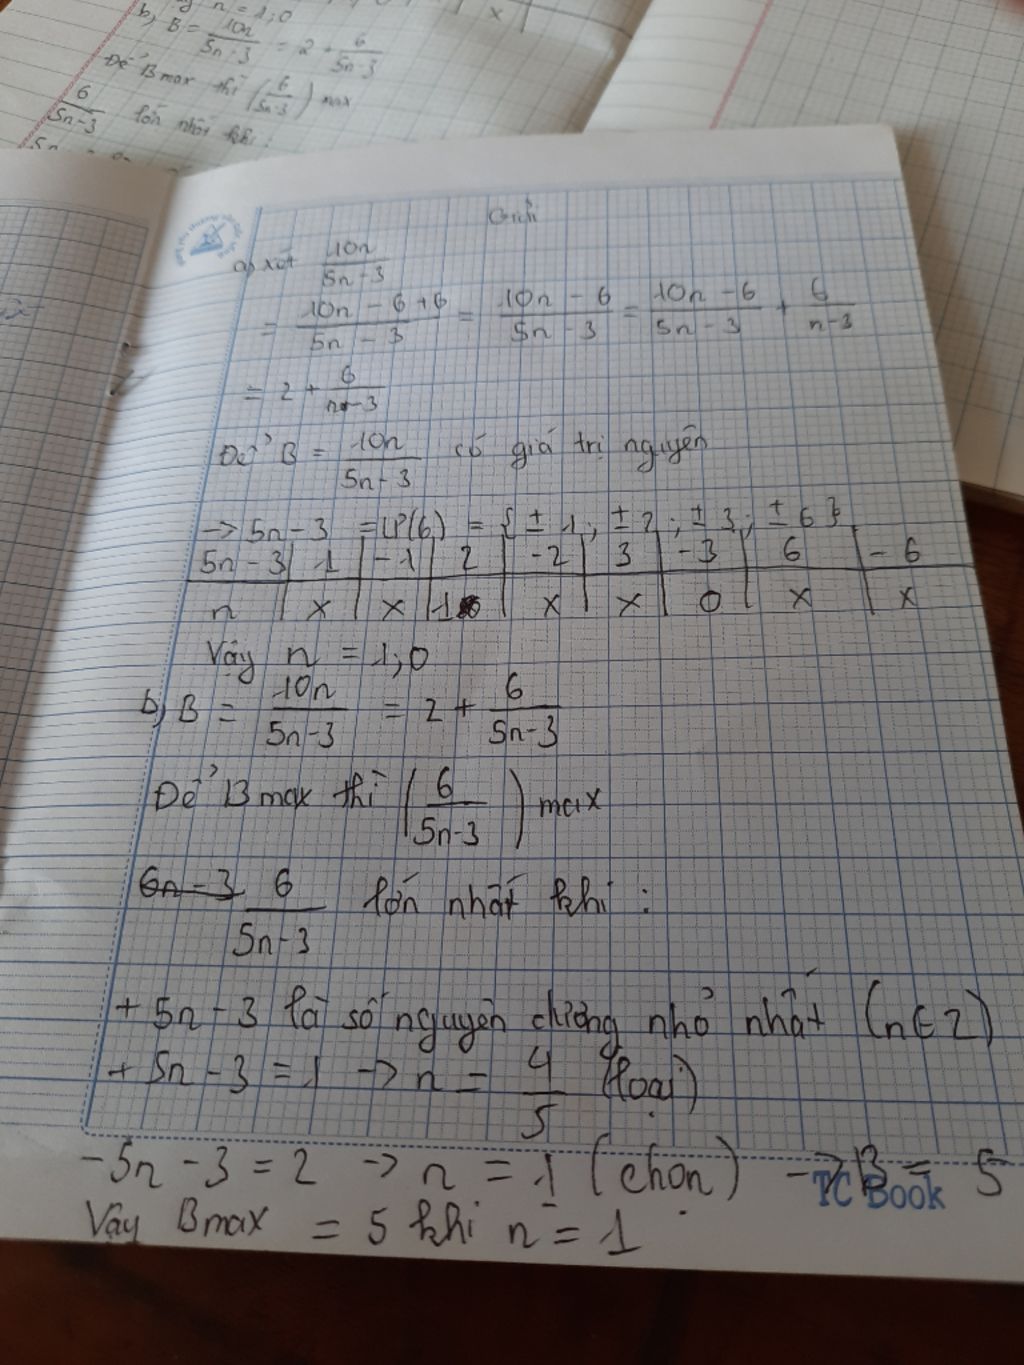 n = 1,0
b, B = 10n/5n-3 = 2 + 6/5n-3
Để B max thì (6/5n-3) max
6/5n-3 lớn nhất khi :
Giải
a, xét 10n/5n-3
= 10n - 6 + 6/5n - 3 = 10n - 6/5n - 3 = 10n - 6/5n - 3 + 6/n-3
= 2 + 6/n-3
Để B = 10n/5n-3 có giá trị nguyên
-> 5n-3 = Ư(6) = { ± 1 ; ± 2 ; ± 3 ; ± 6 }
5n - 3 | 1 | -1 | 2 | -2 | 3 | -3 | 6 | - 6
n | x | x | 1 | x | x | 0 | x | x
Vậy n = 1,0
b, B = 10n/5n-3 = 2 + 6/5n-3
Để B max thì (6/5n-3) max
6n-3 6/5n-3 lớn nhất khi :
+ 5n - 3 là số nguyên dương nhỏ nhất (n∈Z)
+ 5n - 3 = 1 -> n = 4/5 (loại)
- 5n - 3 = 2 -> n = 1 (chọn) -> B = 5
TC Book
Vậy Bmax = 5 khi n = 1